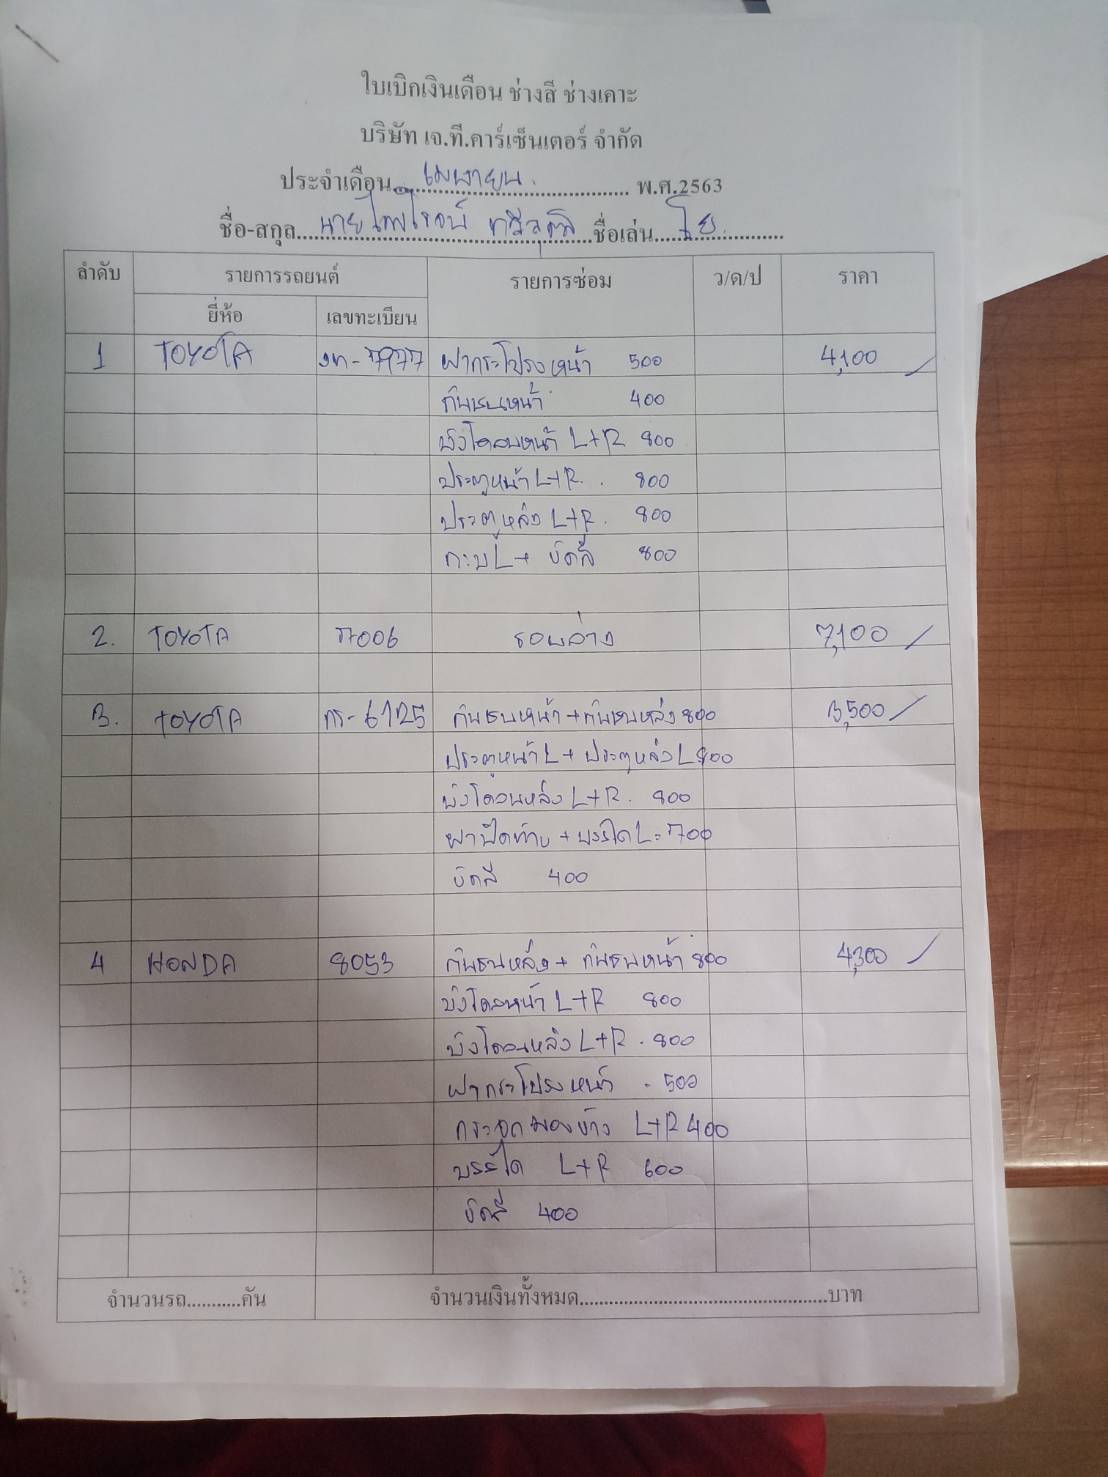 ใบเบิกเงินเดือน ช่างสี ช่างเคาะ
บริษัท เจ.ที.คาร์เซ็นเตอร์ จำกัด
ประจำเดือน เมษายน พ.ศ.2563
ชื่อ-สกุล นายไพโรจน์ ชื่อเล่น
ลำดับ รายการรถยนต์ รายการซ่อม ว/ด/ป ราคา
ยี่ห้อ เลขทะเบียน
1 TOYOTA ฝากระโปรงหน้า 500 4,100
กันชนหน้า 400
บังโคลนหน้า L+R 800
ประตูหน้า L+R. 800
ประตูหลัง L+R. 800
กะบ L+ ขัดสี 800
2. TOYOTA 7006 รอบล่าง 7,100
3. TOYOTA กร-6125 กันชนหน้า+กันชนหลัง 800 3,500
ประตูหน้า L+ ประตูหลัง L 800
บังโคลนหลัง L+R. 800
ฝาปิดท้าย + บรรได L= 700
ขัดสี 400
4 HONDA 8053 กันชนหลัง + กันชนหน้า 800 4,300
บังโคลนหน้า L+R 800
บังโคลนหลัง L+R. 800
ฝากระโปรงหน้า . 500
กระจกมองข้าง L+R 400
บรรได L+R 600
ขัดสี 400
จำนวนรถ..........คัน จำนวนเงินทั้งหมด..................................................บาท